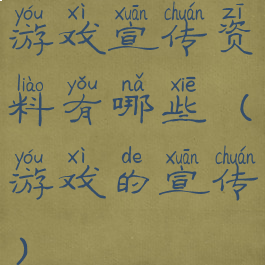 yóu xì xuān chuán zī
游戏宣传资
liào yǒu nǎ xiē
料有哪些（
yóu xì de xuān chuán
游戏的宣传
）